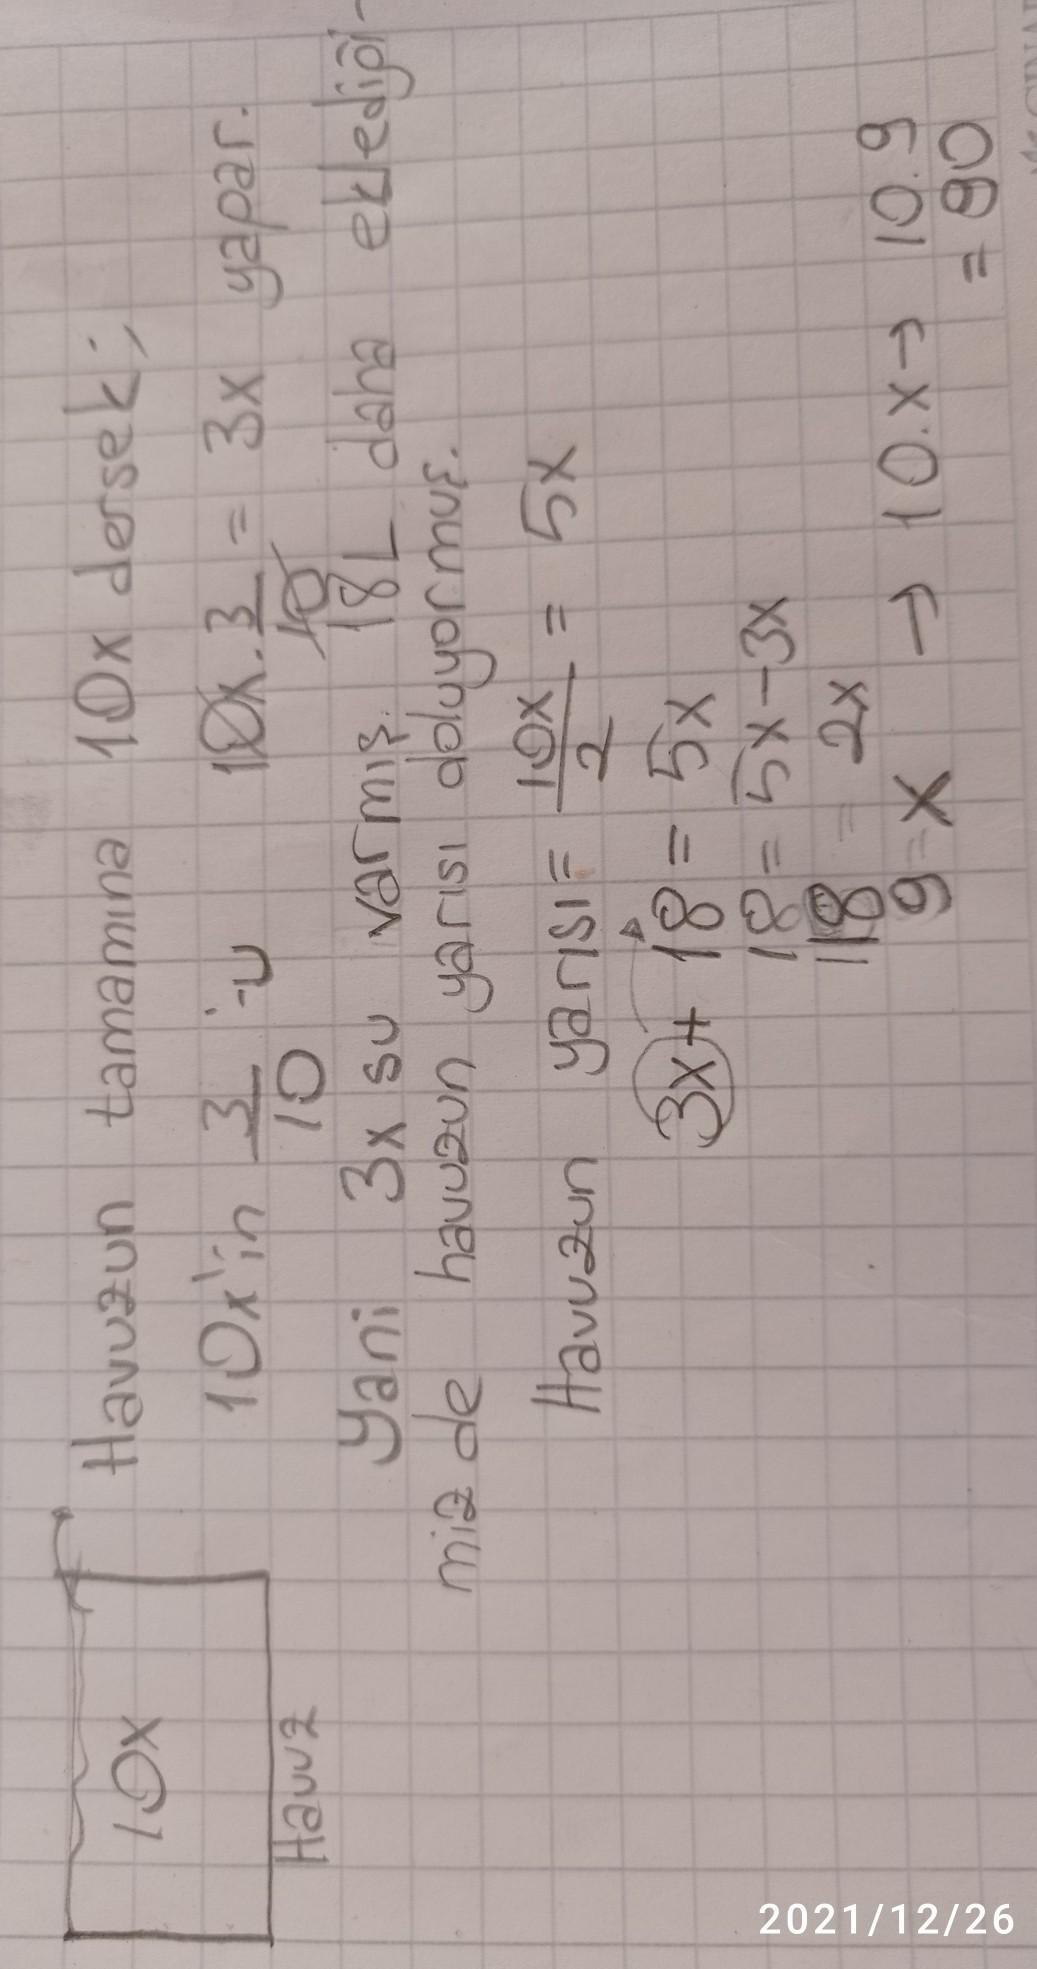 10x
Havuz
Havuzun tamamına 10x dersek;
10x'in 3/10 'u 10x . 3/10 = 3x yapar.
Yani 3x su varmış. 18 L daha eklediği-
miz de havuzun yarısı doluyormuş.
Havuzun yarısı = 10x/2 = 5x
3x + 18 = 5x
18 = 5x - 3x
18 = 2x
9 = x → 10.x → 10.9
= 90
2021/12/26